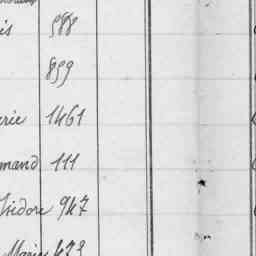 is 588
859
erie 1461
mand 111
Isidore 947
Marie 473